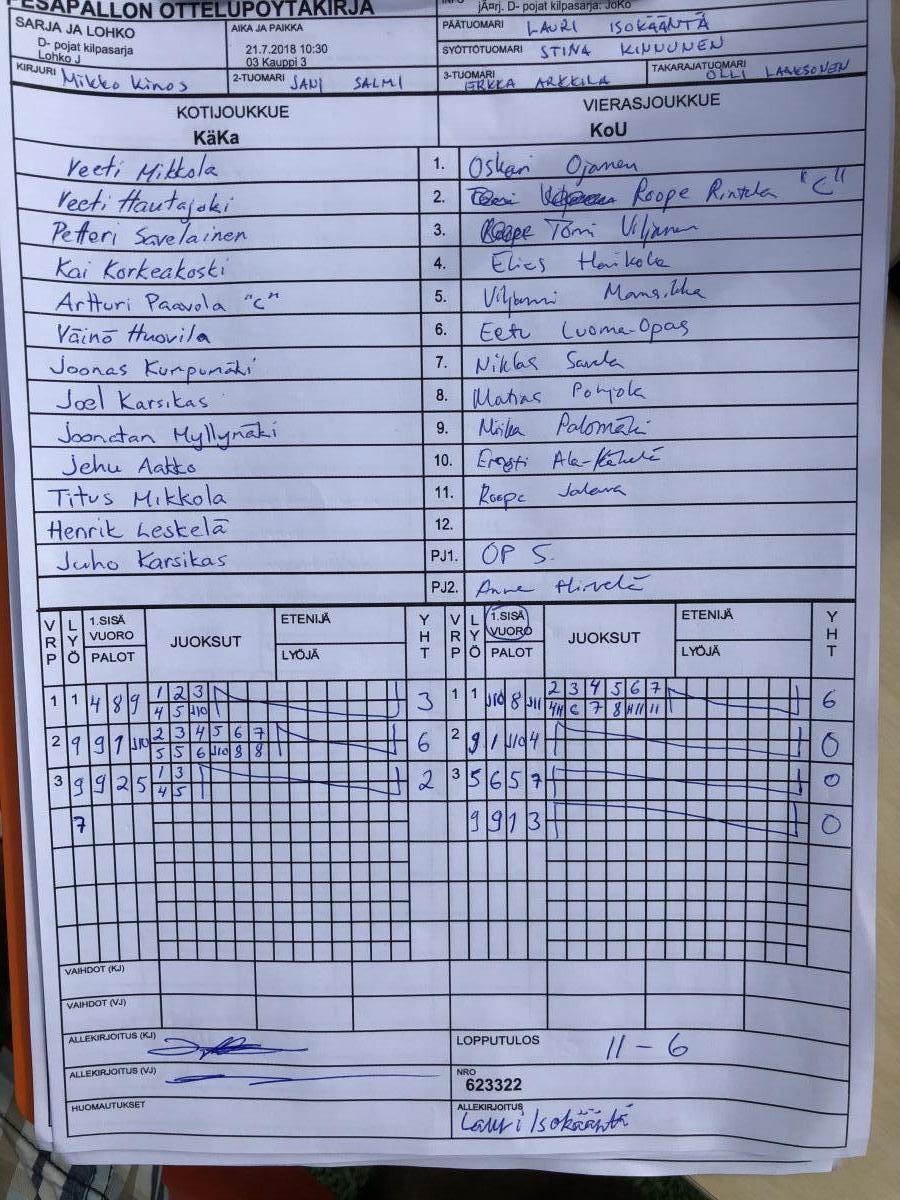 PESÄPALLON OTTELUPÖYTÄKIRJA
järj. D- pojat kilpasarja: JoKo
SARJA JA LOHKO
D- pojat kilpasarja
Lohko J
AIKA JA PAIKKA
21.7.2018 10:30
03 Kauppi 3
PÄÄTUOMARI LAURI ISOKÄÄNTÄ
SYÖTTÖTUOMARI STINA KINNUNEN
KIRJURI Mikko Kinos
2-TUOMARI JANI SALMI
3-TUOMARI ERKKA ARKKILA
TAKARAJATUOMARI OLLI LAAKSONEN
KOTIJOUKKUE
KäKa
VIERASJOUKKUE
KoU
Veeti Mikkola 1. Oskari Ojanen
Veeti Hautajoki 2. Roope Rintala "C"
Petteri Savelainen 3. Tomi Viljanen
Kai Korkeakoski 4. Elias Harkola
Artturi Paavola "C" 5. Viljami Mansikka
Väinö Huovila 6. Eetu Luoma-Opas
Joonas Kumpumäki 7. Niklas Savela
Joel Karsikas 8. Matias Pohjola
Joonatan Myllymäki 9. Miika Palomäki
Jehu Aatko 10. Ala-
Titus Mikkola 11. Roope Jalava
Henrik Leskelä 12.
Juho Karsikas PJ1. OP S.
PJ2. Anne Hirvelä
VRP LYÖ 1.SISÄ VUORO PALOT JUOKSUT ETENIJÄ LYÖJÄ YHT VRP LYÖ 1.SISÄ VUORO PALOT JUOKSUT ETENIJÄ LYÖJÄ YHT
1 1 4 8 9 1 2 3 3 1 1 J10 8 J11 2 3 4 5 6 7 6
4 5 J10 6 7 8 11
2 9 9 1 J10 2 3 4 5 6 7 6 2 9 1 J10 4 0
5 5 6 J10 8 8
3 9 9 2 5 1 3 2 3 5 6 5 7 0
4 5
7 9 9 1 3 0
VAIHDOT (KJ)
VAIHDOT (VJ)
ALLEKIRJOITUS (KJ)
LOPPUTULOS 11 - 6
ALLEKIRJOITUS (VJ)
NRO
623322
HUOMAUTUKSET
ALLEKIRJOITUS
Lauri Isokääntä